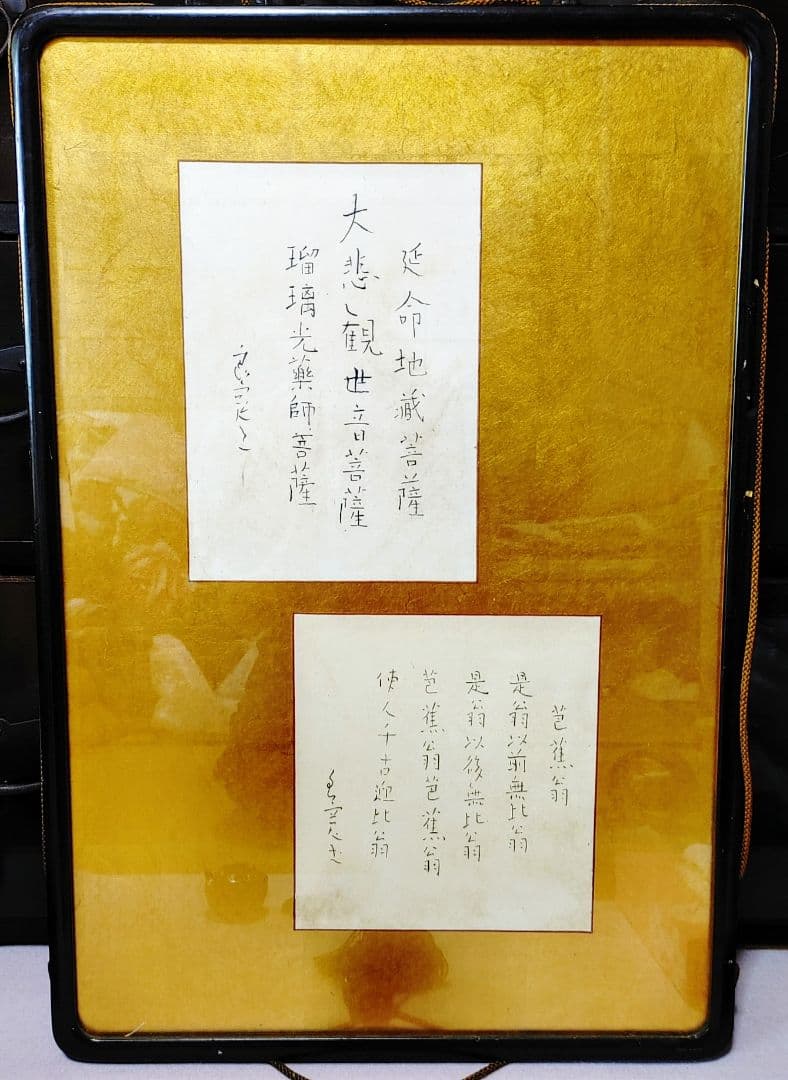 延命地蔵菩薩
大悲観世音菩薩
瑠璃光藥師菩薩
良寛書
芭蕉翁
是翁以前無比翁
是翁以後無比翁
芭蕉翁芭蕉翁
使人千古迎比翁
良寛書